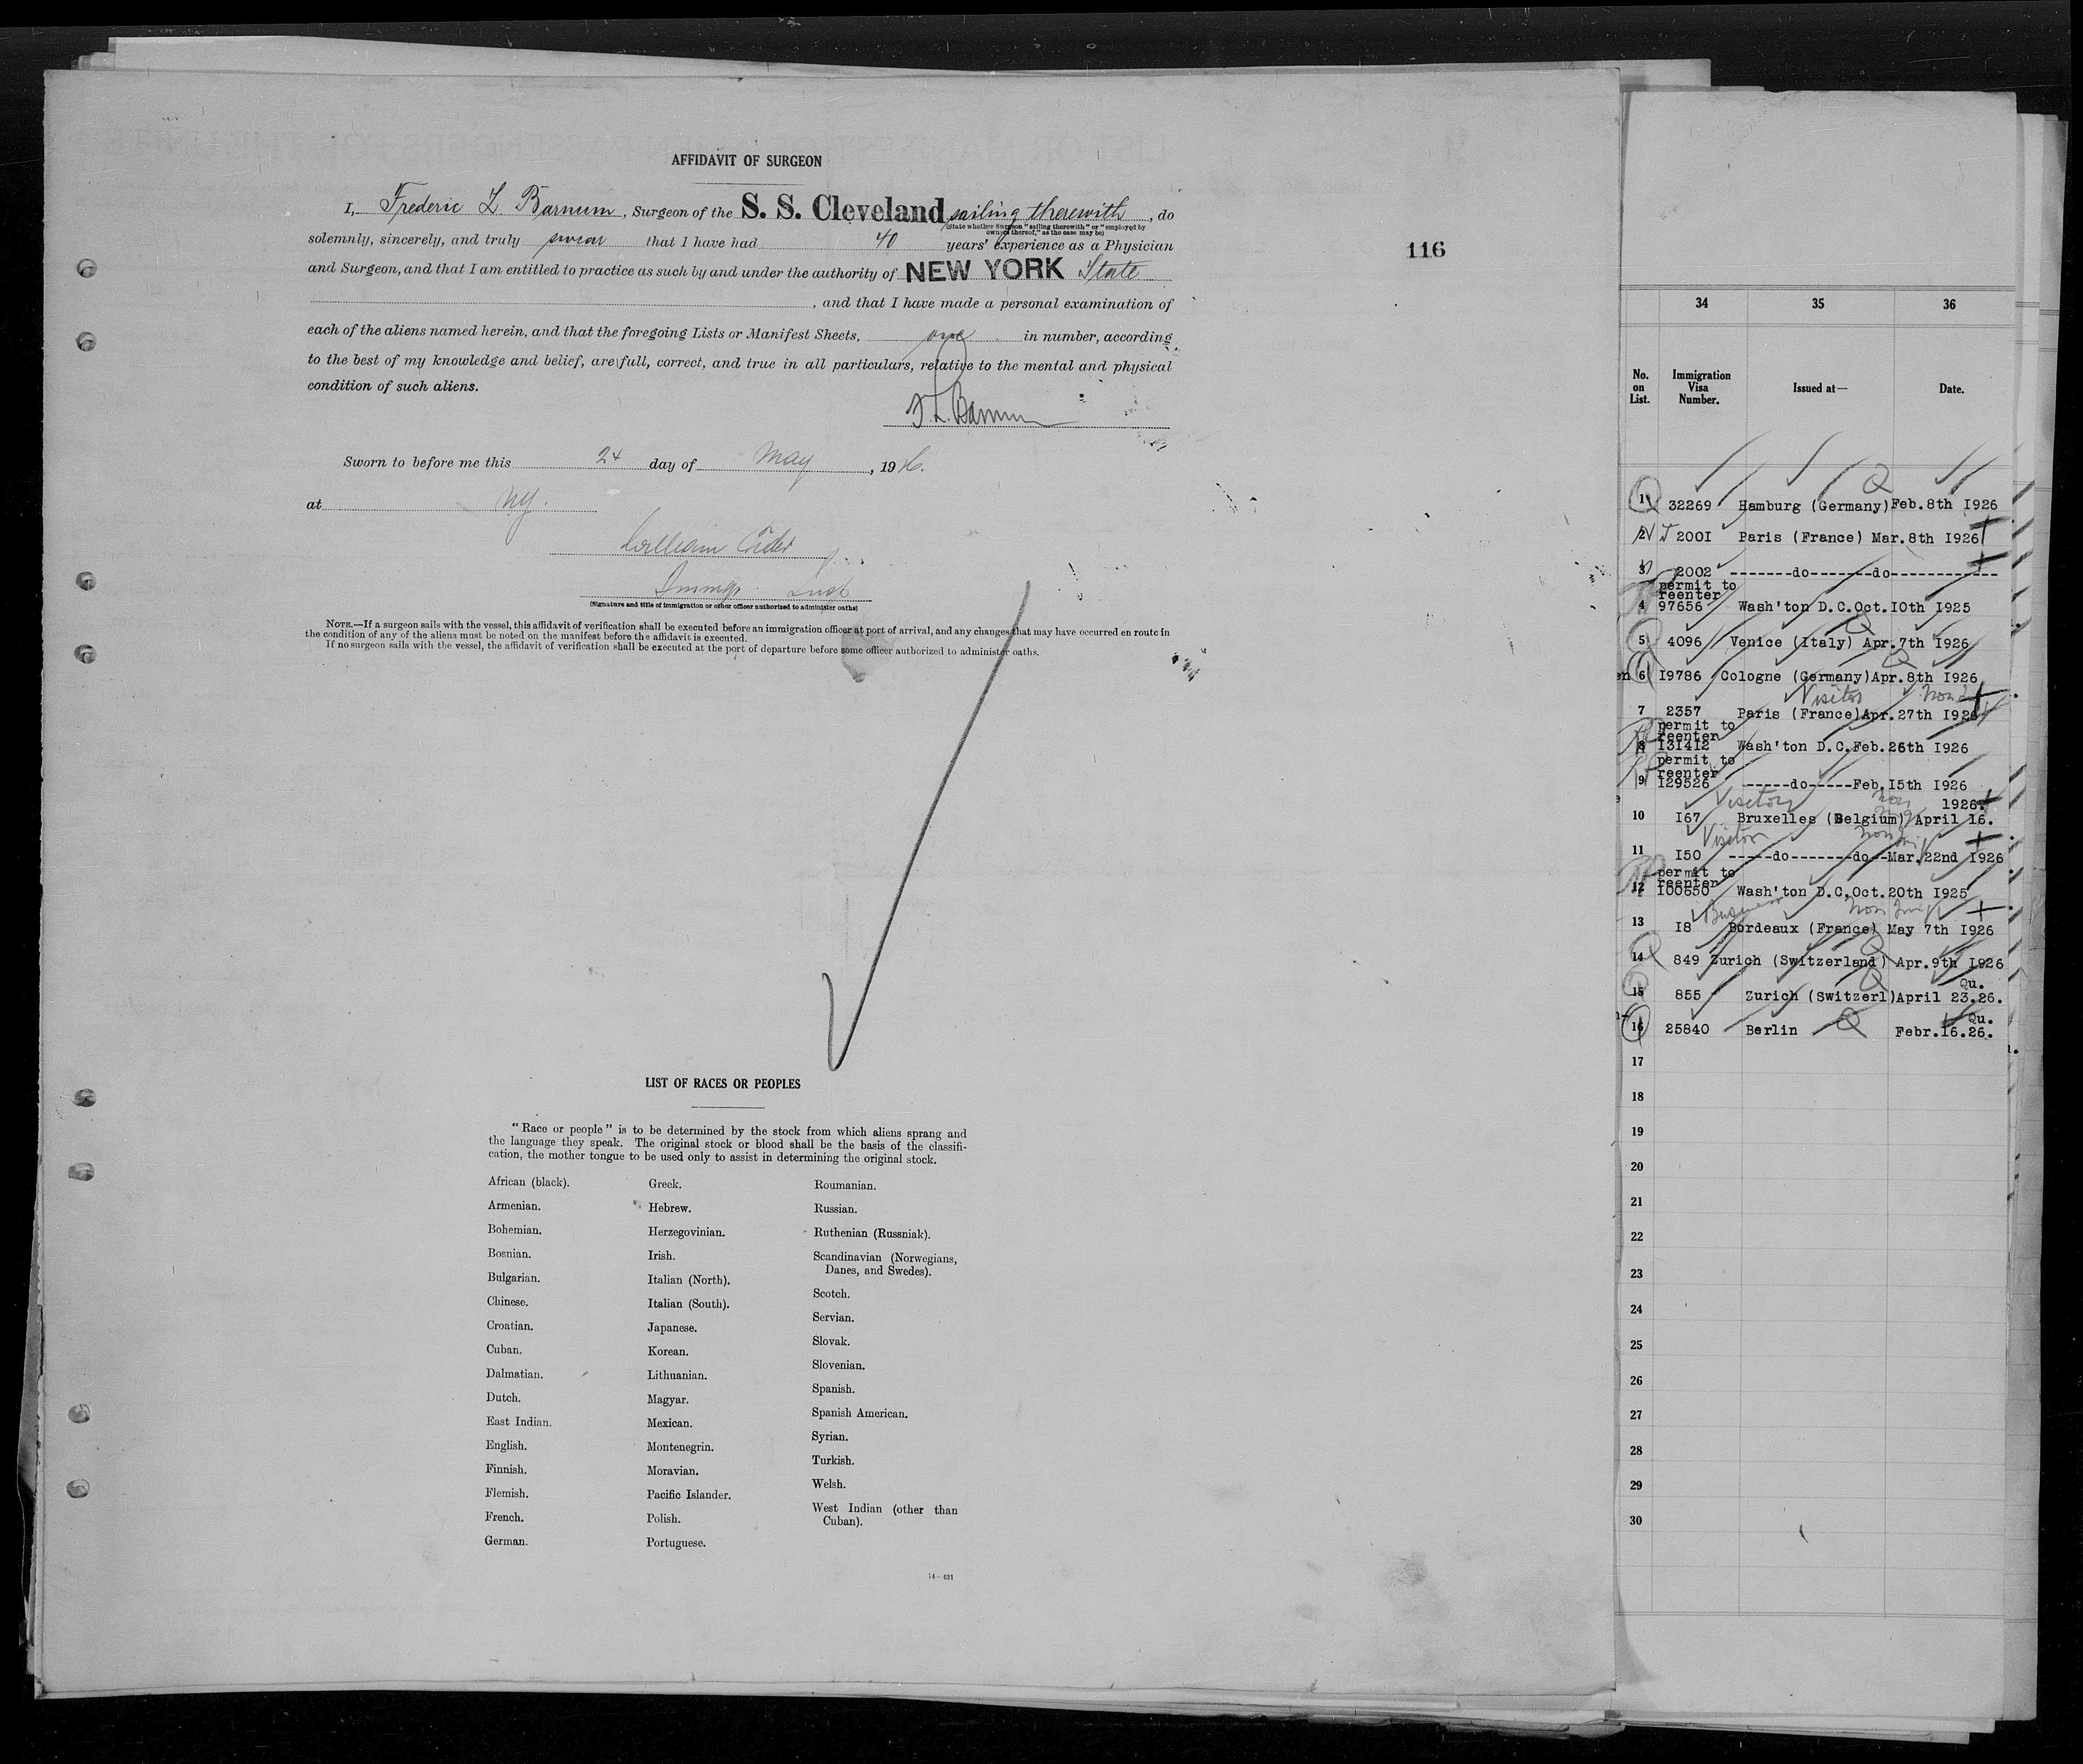 AFFIDAVIT OF SURGEON
I, Frederic L. Barnum, Surgeon of the S. S. Cleveland sailing therewith, do
(State whether Surgeon "sailing therewith" or "employed by
owners thereof," as the case may be)
solemnly, sincerely, and truly swear that I have had 40 years' experience as a Physician
and Surgeon, and that I am entitled to practice as such by and under the authority of NEW YORK State
, and that I have made a personal examination of
each of the aliens named herein, and that the foregoing Lists or Manifest Sheets, one in number, according
to the best of my knowledge and belief, are full, correct, and true in all particulars, relative to the mental and physical
condition of such aliens.
F. L. Barnum
Sworn to before me this 24 day of May, 1926.
at NY.
William
(Signature and title of immigration or other officer authorized to administer oaths)
NOTE.—If a surgeon sails with the vessel, this affidavit of verification shall be executed before an immigration officer at port of arrival, and any changes that may have occurred en route in
the condition of any of the aliens must be noted on the manifest before the affidavit is executed.
If no surgeon sails with the vessel, the affidavit of verification shall be executed at the port of departure before some officer authorized to administer oaths.
LIST OF RACES OR PEOPLES
"Race or people" is to be determined by the stock from which aliens sprang and
the language they speak. The original stock or blood shall be the basis of the classifi-
cation, the mother tongue to be used only to assist in determining the original stock.
African (black).
Armenian.
Bohemian.
Bosnian.
Bulgarian.
Chinese.
Croatian.
Cuban.
Dalmatian.
Dutch.
East Indian.
English.
Finnish.
Flemish.
French.
German.
Greek.
Hebrew.
Herzegovinian.
Irish.
Italian (North).
Italian (South).
Japanese.
Korean.
Lithuanian.
Magyar.
Mexican.
Montenegrin.
Moravian.
Pacific Islander.
Polish.
Portuguese.
Roumanian.
Russian.
Ruthenian (Russniak).
Scandinavian (Norwegians,
Danes, and Swedes).
Scotch.
Servian.
Slovak.
Slovenian.
Spanish.
Spanish American.
Syrian.
Turkish.
Welsh.
West Indian (other than
Cuban).
14-431
116
34 35 36
No. on List. Immigration Visa Number. Issued at— Date.
1 32269 Hamburg (Germany) Feb. 8th I926
2 200I Paris (France) Mar. 8th I926
3 2002 -------do-------do------------
permit to
reenter
4 97656 Wash'ton D.C. Oct. I0th I925
5 4096 Venice (Italy) Apr. 7th I926
6 I9786 Cologne (Germany) Apr. 8th I926
Visitor
7 2357 Paris (France) Apr. 27th I926
permit to
reenter
8 I3I4I2 Wash'ton D.C. Feb. 26th I926
permit to
reenter
9 I29526 -----do-----Feb. I5th I926
Visitor 1926.
10 I67 Bruxelles (Belgium) April 16.
Visitor
11 I50 -----do-------do--Mar. 22nd I926
permit to
reenter
12 I00650 Wash'ton D.C. Oct. 20th I925
Business
13 I8 Bordeaux (France) May 7th I926
14 849 Zurich (Switzerland) Apr. 9th I926
Qu.
15 855 Zurich (Switzerl) April 23.26.
Qu.
16 25840 Berlin Febr. 16.26.
17
18
19
20
21
22
23
24
25
26
27
28
29
30